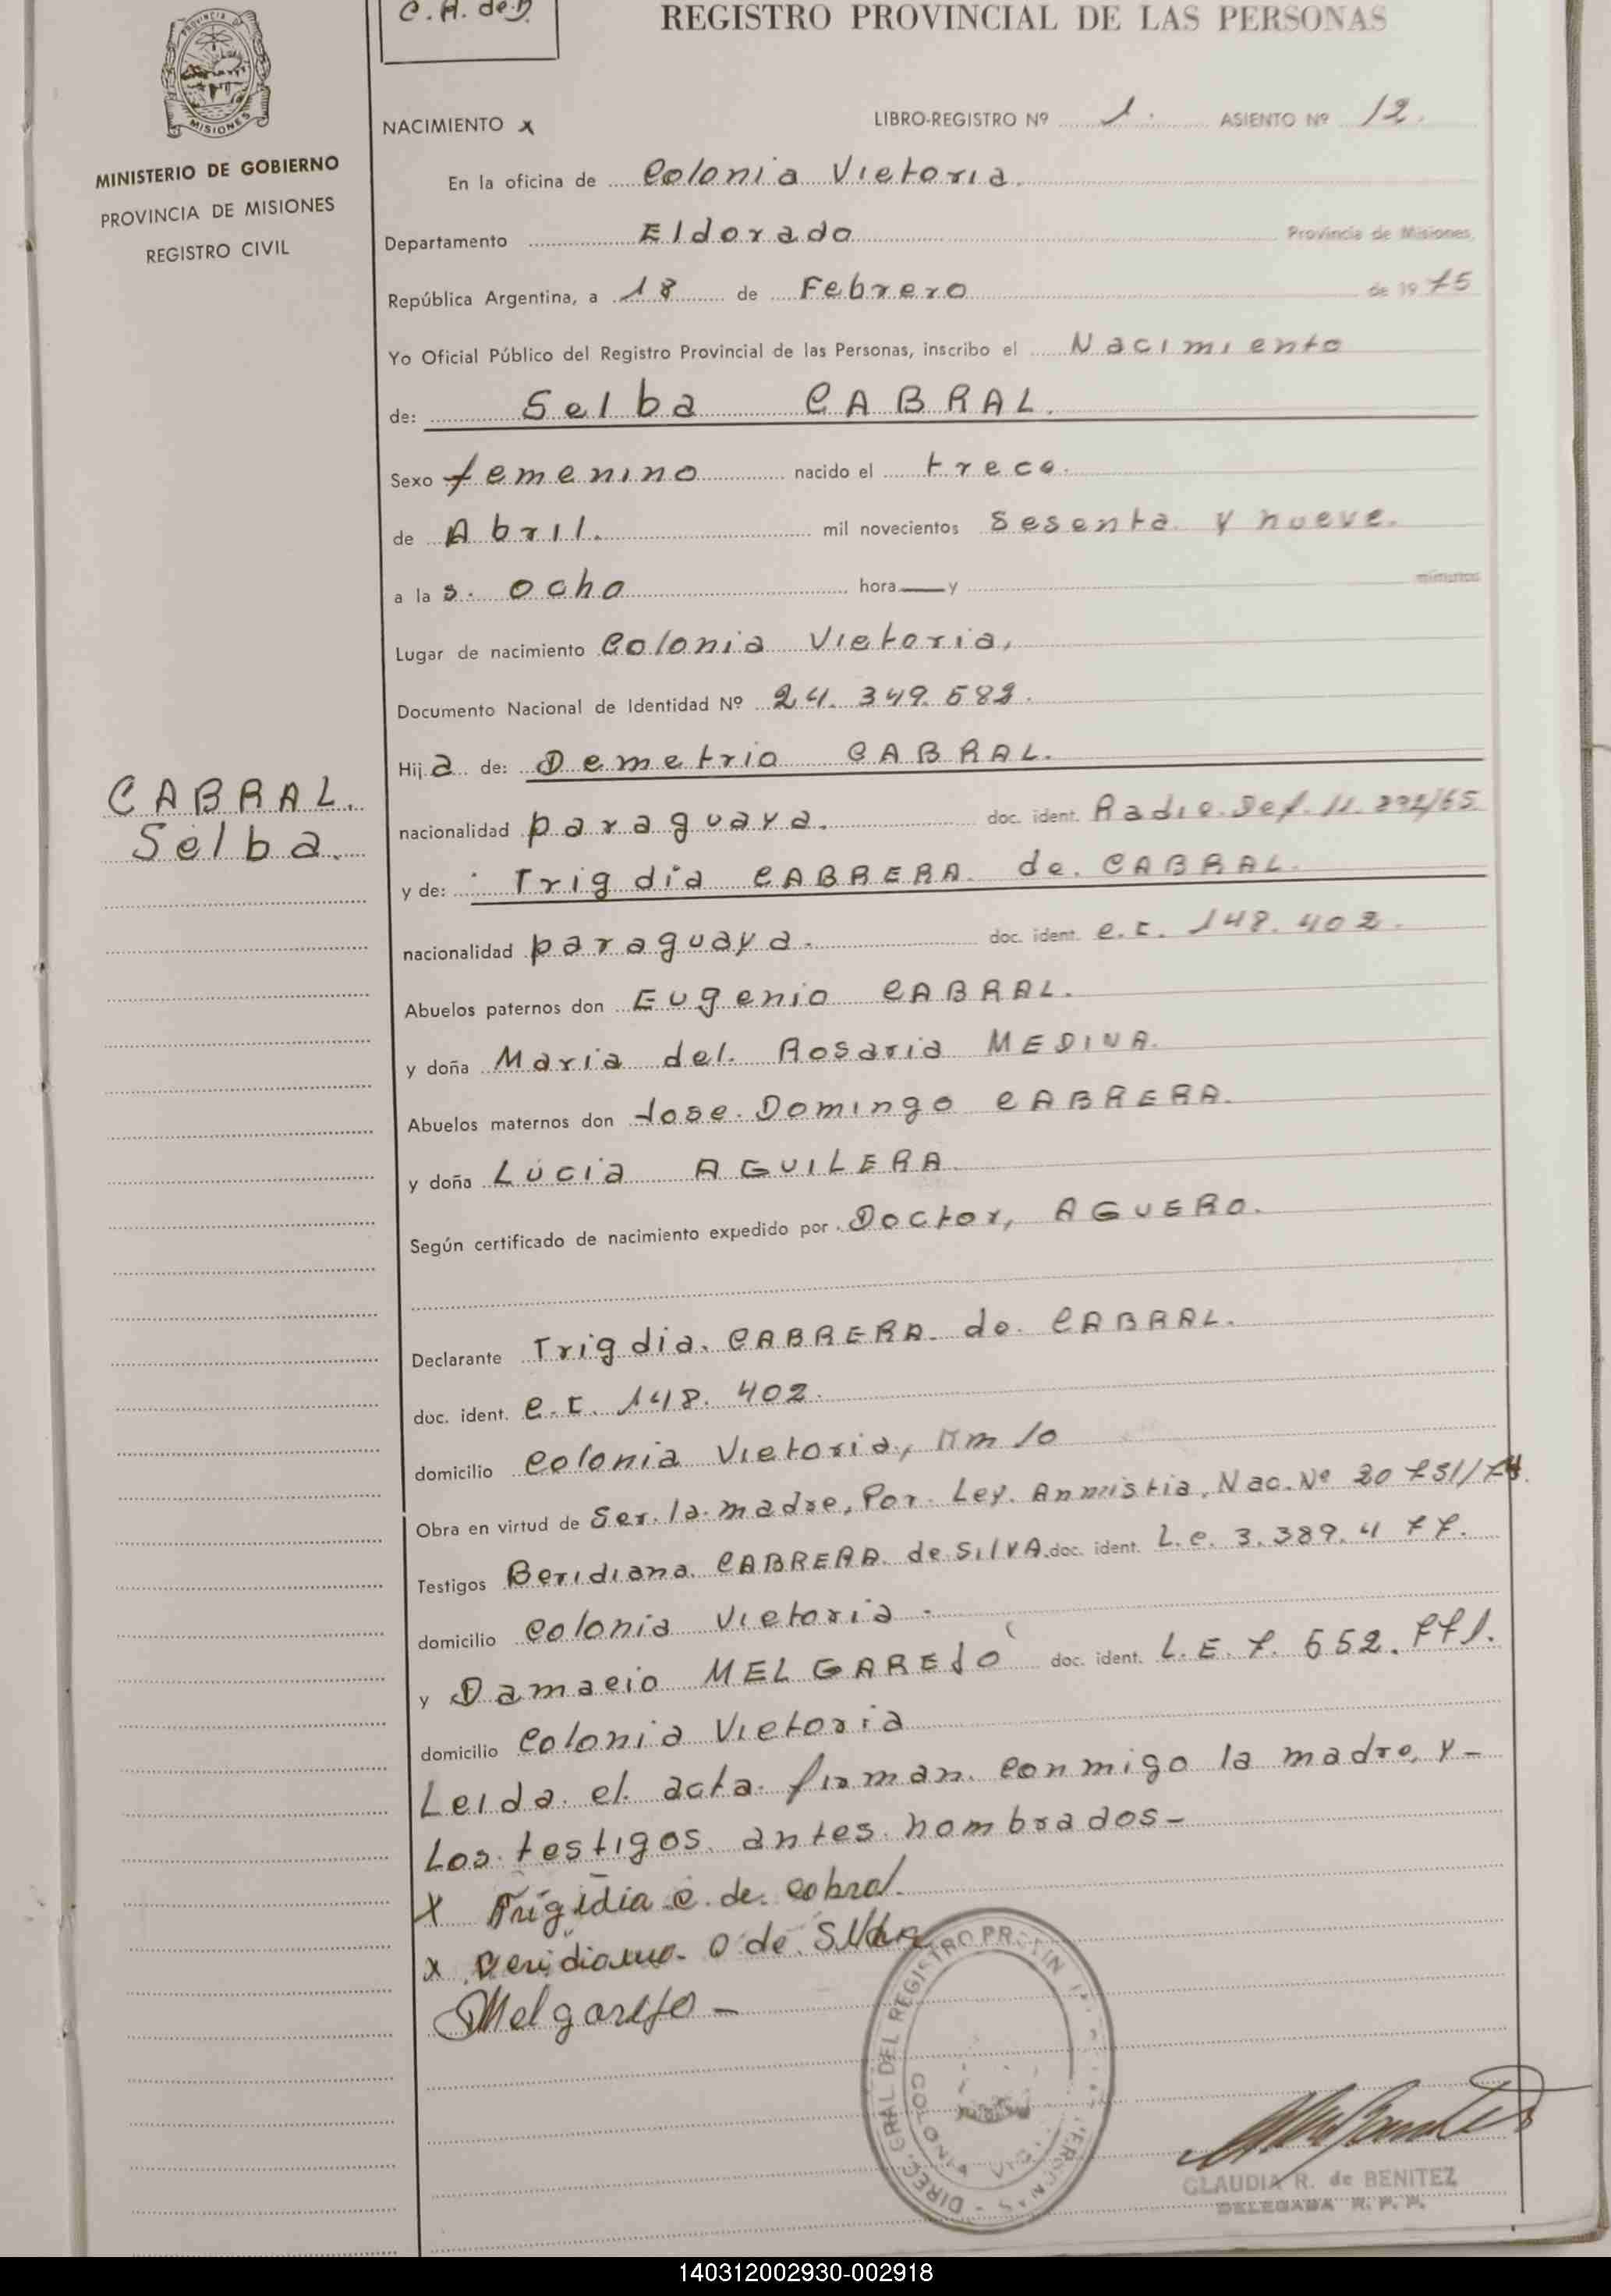 C. A. de D.
REGISTRO PROVINCIAL DE LAS PERSONAS
PROVINCIA D
MISIONES
MINISTERIO DE GOBIERNO
PROVINCIA DE MISIONES
REGISTRO CIVIL
NACIMIENTO x
LIBRO-REGISTRO Nº 1. ASIENTO Nº 12.
En la oficina de Colonia Victoria.
Departamento Eldorado Provincia de Misiones,
República Argentina, a 18 de Febrero de 1975
Yo Oficial Público del Registro Provincial de las Personas, inscribo el Nacimiento
de: Selba CABRAL.
Sexo femenino nacido el trece.
de Abril. mil novecientos Sesenta y nueve.
a la s. ocho hora — y minutos
Lugar de nacimiento Colonia Victoria,
Documento Nacional de Identidad Nº 24. 349. 582.
Hij a de: Demetrio CABRAL.
CABRAL.
Selba.
nacionalidad paraguaya. doc. ident. Radic. Def. 11. 292/65
y de: Trigdia CABRERA. de. CABRAL.
nacionalidad paraguaya. doc. ident. C. I. 148. 402.
Abuelos paternos don Eugenio CABRAL.
y doña Maria del. Rosaria MEDINA.
Abuelos maternos don Jose. Domingo CABRERA.
y doña Lucia AGUILERA.
Según certificado de nacimiento expedido por Doctor, AGUERO.
Declarante Trigdia. CABRERA. de. CABRAL.
doc. ident. C. I. 148. 402.
domicilio Colonia Victoria, Km 10
Obra en virtud de Ser. la. madre, Por. Ley. Anmistia. Nac. Nº 20 751/74.
Testigos Beridiana. CABRERA. de SILVA. doc. ident. L. C. 3. 389. 4 77.
domicilio Colonia Victoria.
y Damacio MELGAREJO doc. ident. L. E. 7. 552. 771.
domicilio Colonia Victoria
Leida. el. acta. firman. conmigo la madre, y -
Los. testigos. antes. nombrados -
X Frigidia C. de. cabral.
x Veridiana. C de. Silva
DMelgarejo -
DIREC. GRAL DEL REGISTRO PROVIN PERSONAS
CLAUDIA R. de BENITEZ
DELEGADA R. P. P.
140312002930-002918